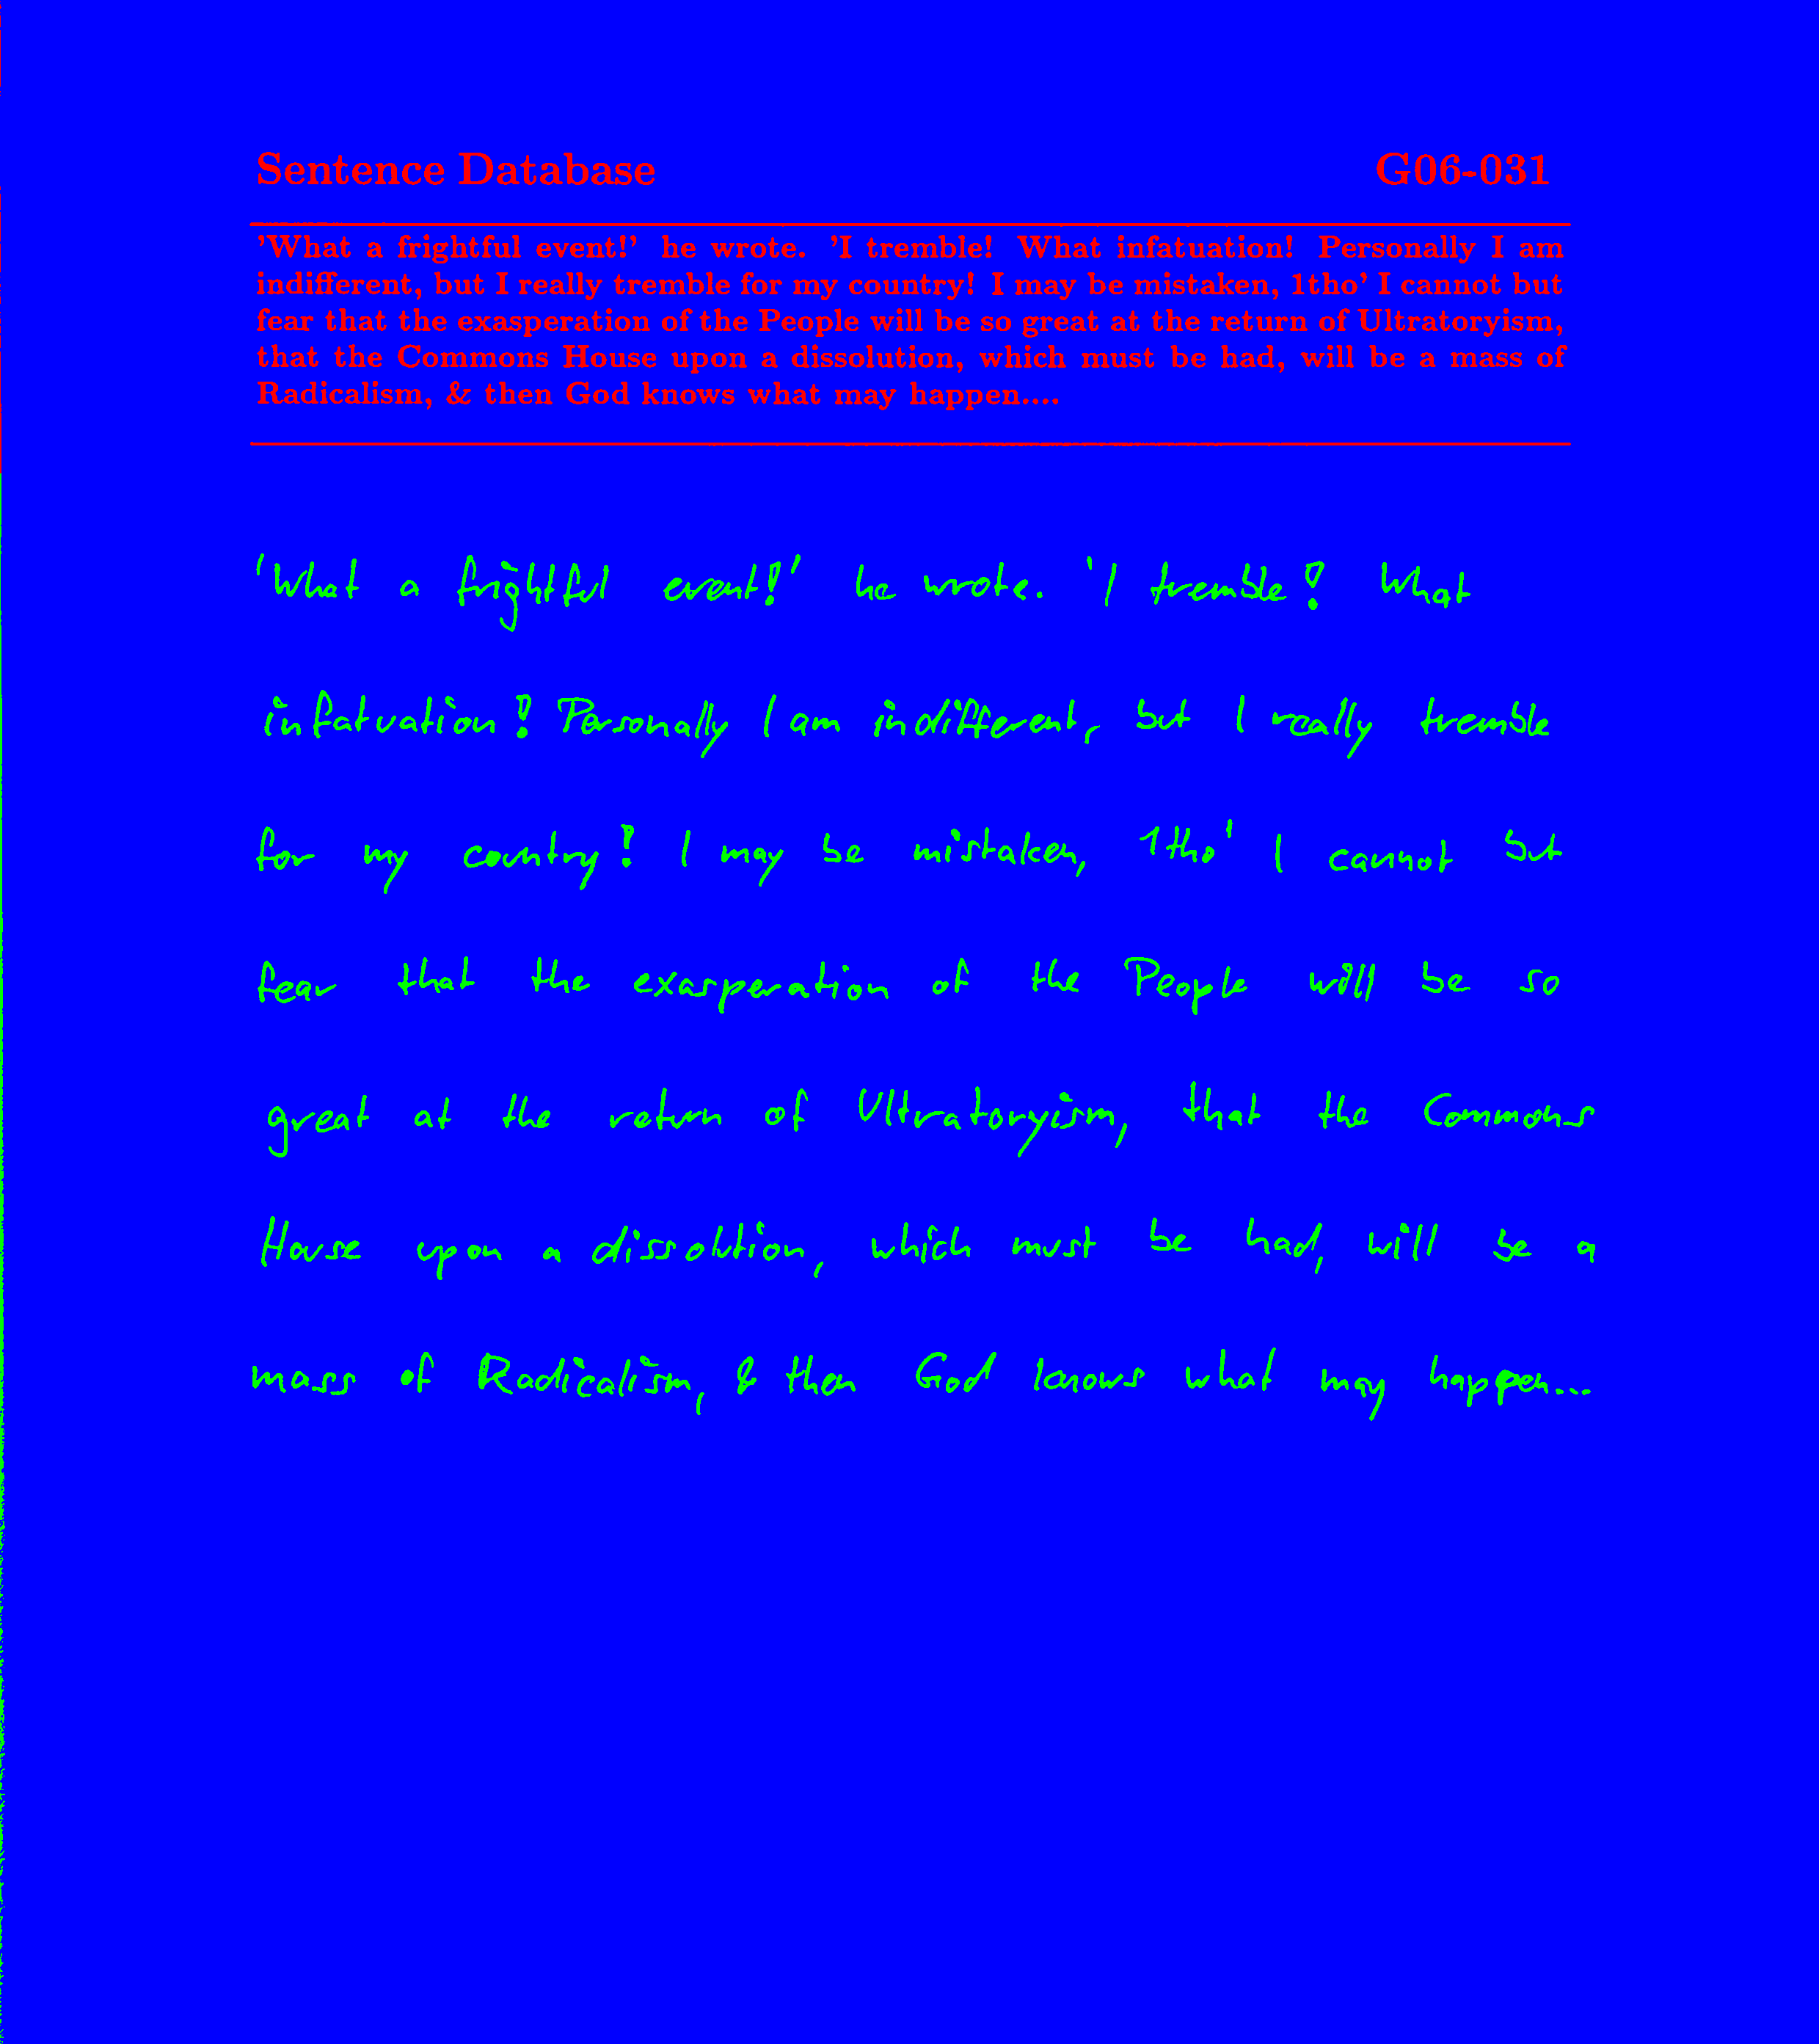 Sentence Database G06-031
'What a frightful event!' he wrote. 'I tremble! What infatuation! Personally I am
indifferent, but I really tremble for my country! I may be mistaken, 1tho' I cannot but
fear that the exasperation of the People will be so great at the return of Ultratoryism,
that the Commons House upon a dissolution, which must be had, will be a mass of
Radicalism, & then God knows what may happen....
'What a frightful event!' he wrote. 'I tremble! What
infatuation! Personally I am indifferent, but I really tremble
for my country! I may be mistaken, 1tho' I cannot but
fear that the exasperation of the People will be so
great at the return of Ultratoryism, that the Commons
House upon a dissolution, which must be had, will be a
mass of Radicalism, & then God knows what may happen...